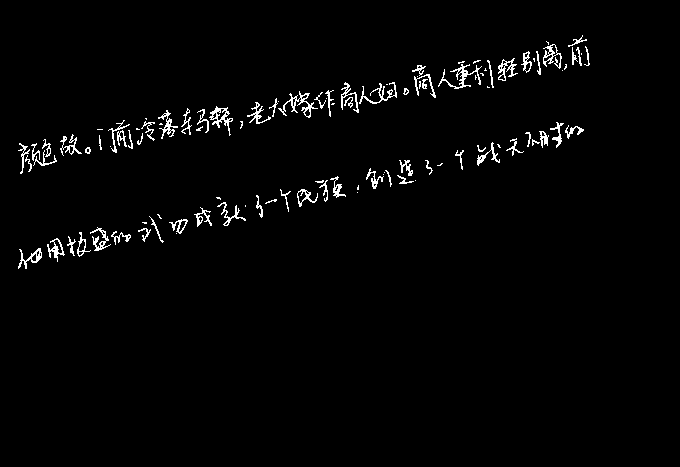 颜色故。门前冷落车马稀,老大嫁作商人妇。商人重利轻别离,前
他用极盛的武功成就了一个民族,创造了一个战无不胜的